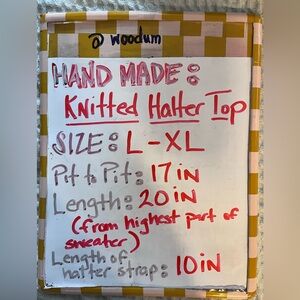 @ woodum
HAND MADE:
Knitted Halter Top
SIZE: L-XL
Pit to Pit: 17 IN
Length: 20 IN
(from highest part of
sweater)
Length of
halter strap: 10 IN